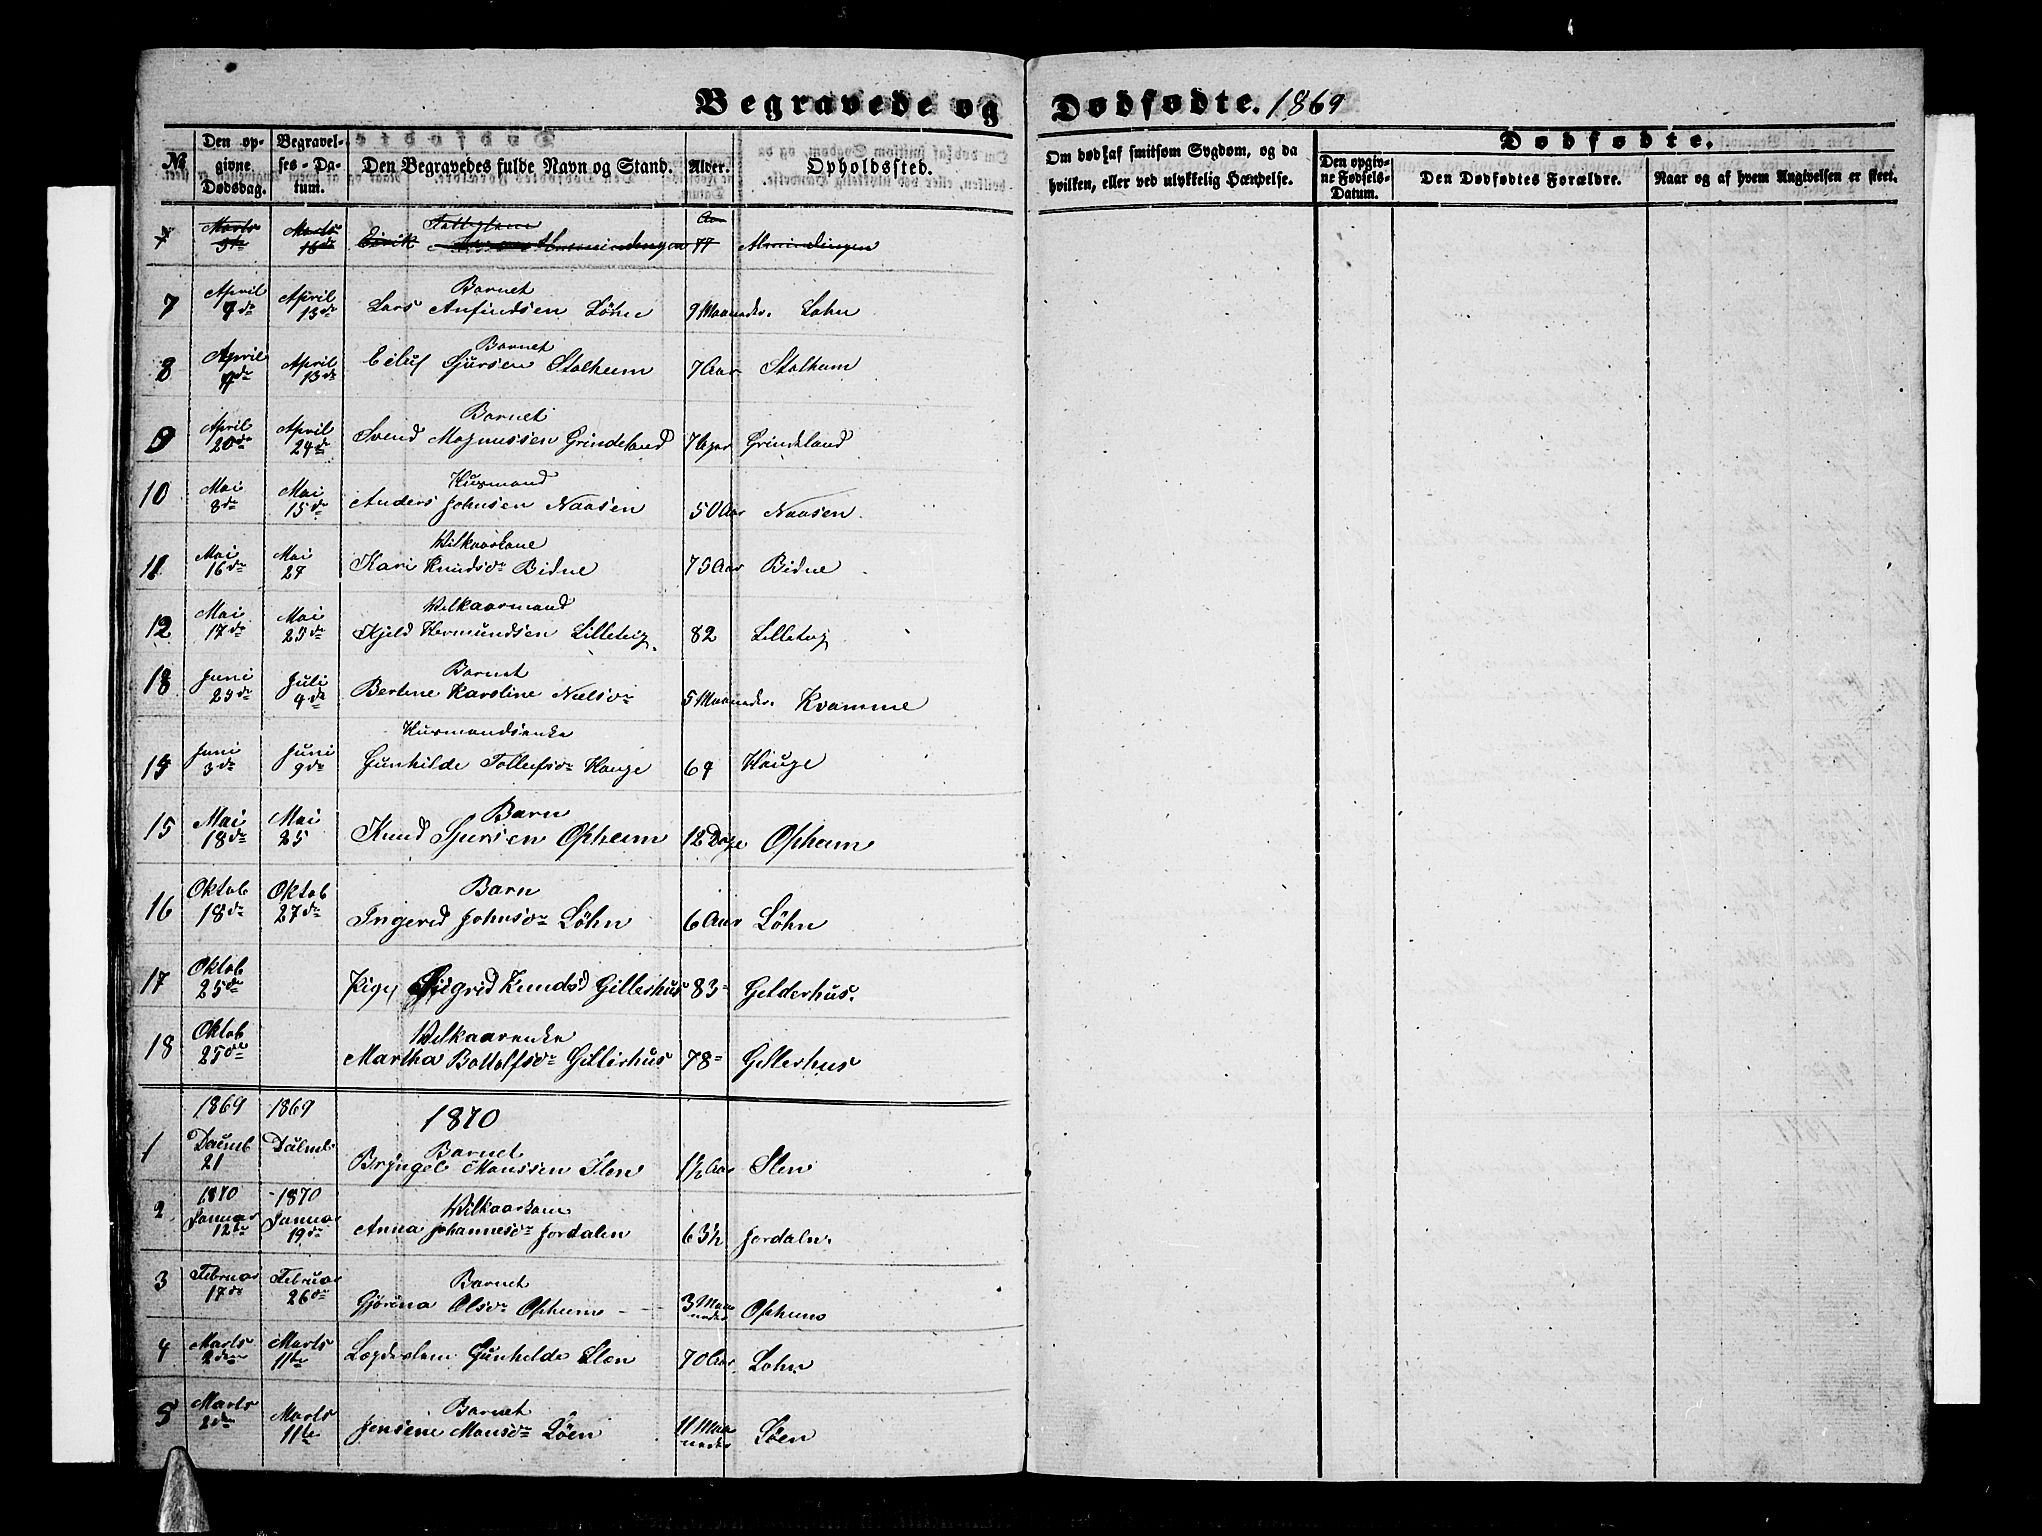 Begravede og Dødfødte. 1869
No
Den opgivne Dødsdag.
Begravelses-Datum.
Den Begravedes fulde Navn og Stand.
Alder.
Opholdssted.
Om død af smitsom Sygdom, og da hvilken, eller ved ulykkelig Hændelse.
Dødfødte.
Den opgivne Fødsels-Datum.
Den Dødfødtes Forældre.
Naar og af hvem Angivelsen er skeet.
7 Marts Marts 16de Eirik Almindingen 77 Almindingen
Barnet
7 April 7de April 13de Lars Anfindsen Löhne 9 Maaneder. Lohn
Barnet
8 April April 13de Eiluf Sjursen Stalheim 7 Aar Stalheim
Barnet
9 April 20de April 24de Svend Magnussen Grindeland 7 Aar Grindeland
Husmand
10 Mai 8de Mai 15de Anders Johnsen Naasen 50 Aar Naasen
Wilkaarkone
11 Mai 16de Mai 24 Kari Knudsdr Bidne 75 Aar Bidne
Wilkaarmand
12 Mai 17de Mai 25de Kjeld Hermundsen Lilletvig 82 Lilletvig
Barnet
13 Juni 25de Juli 4de Bertine Karoline Nielsdr 5 Maaneder. Kvamme
Husmandsenke
14 Juni 3de Juni 9de Gunhilde Tollefsdr Hauge 64 Hauge
Barn
15 Mai 18de Mai 25 Knud Sjursen Opheim 12 Dage Opheim
Barn
16 Oktob 18de Oktob 27de Ingerid Johnsdr Löhn 6 Aar Löhn
17 Oktob 25de Pige Sigrid Knudsd Gillerhus 83 Gelderhus.
Wilkaarenke
18 Oktob 25de Martha Bottolfsdr Gillerhus 78 Gillerhus
1869 1869 1870
Barnet
1 Decemb 21 Bryngel Monssen Slen 1½ Aar Slen
1870 1870 Wilkaarkone
2 Januar 12te Januar 19de Anna Johannesdr Jordalen 63½ Jordaln.
Barnet
3 Februar 17de Februar 26de Gjörina Olsdr Opheim 3 Maaneder Opheim
4 Marts 2den Marts 11te Lægdslem Gunhilde Slen 70 Aar Lohn
Barnet
5 Marts 2den Marts 11te Jensine Monsdr Löen 11 Maaneder Löen